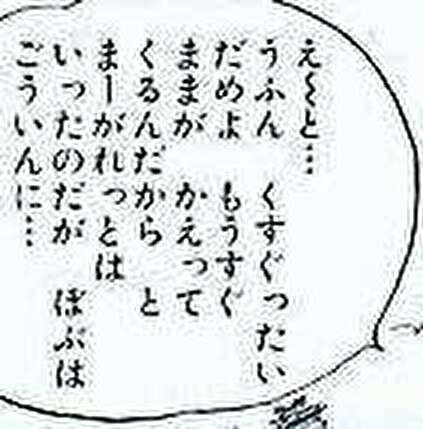 え～と…
うふん　くすぐったい
だめよ　もうすぐ
ままが　かえって
くるんだから　と
まーがれっとは
いったのだが　ぼぶは
ごういんに…